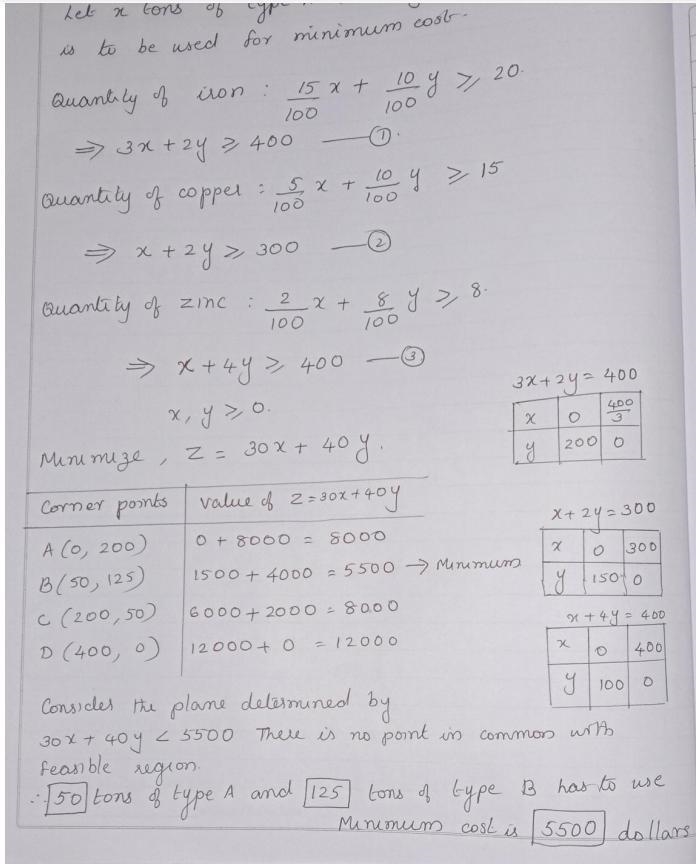 Let x tons of type
is to be used for minimum cost.
Quantity of iron : 15/100 x + 10/100 y ⩾ 20.
⇒ 3x + 2y ⩾ 400 —①.
Quantity of copper : 5/100 x + 10/100 y ⩾ 15
⇒ x + 2y ⩾ 300 —②
Quantity of zinc : 2/100 x + 8/100 y ⩾ 8.
⇒ x + 4y ⩾ 400 —③
x, y ⩾ 0.
Minimize, Z = 30x + 40y.
3x + 2y = 400
x 0 400/3
y 200 0
Corner points Value of Z = 30x + 40y
A (0, 200) 0 + 8000 = 8000
B (50, 125) 1500 + 4000 = 5500 → Minimum
C (200, 50) 6000 + 2000 = 8000
D (400, 0) 12000 + 0 = 12000
x + 2y = 300
x 0 300
y 150 0
x + 4y = 400
x 0 400
y 100 0
Consider the plane determined by
30x + 40y < 5500 There is no point in common with
feasible region.
∴ 50 tons of type A and 125 tons of type B has to use
Minimum cost is 5500 dollars